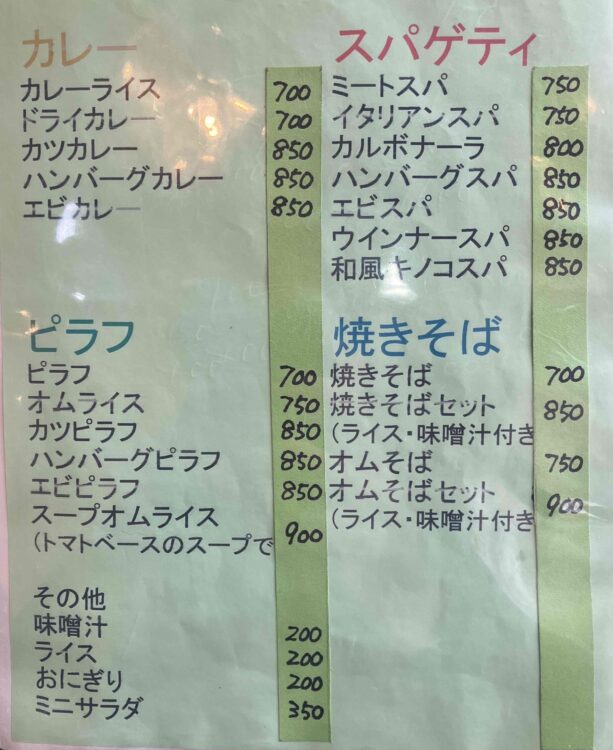 カレー
カレーライス 700
ドライカレー 700
カツカレー 850
ハンバーグカレー 850
エビカレー 850
ピラフ
ピラフ 700
オムライス 750
カツピラフ 850
ハンバーグピラフ 850
エビピラフ 850
スープオムライス
(トマトベースのスープで 900
その他
味噌汁 200
ライス 200
おにぎり 200
ミニサラダ 350
スパゲティ
ミートスパ 750
イタリアンスパ 750
カルボナーラ 800
ハンバーグスパ 850
エビスパ 850
ウインナースパ 850
和風キノコスパ 850
焼きそば
焼きそば 700
焼きそばセット 850
(ライス・味噌汁付き
オムそば 750
オムそばセット 900
(ライス・味噌汁付き